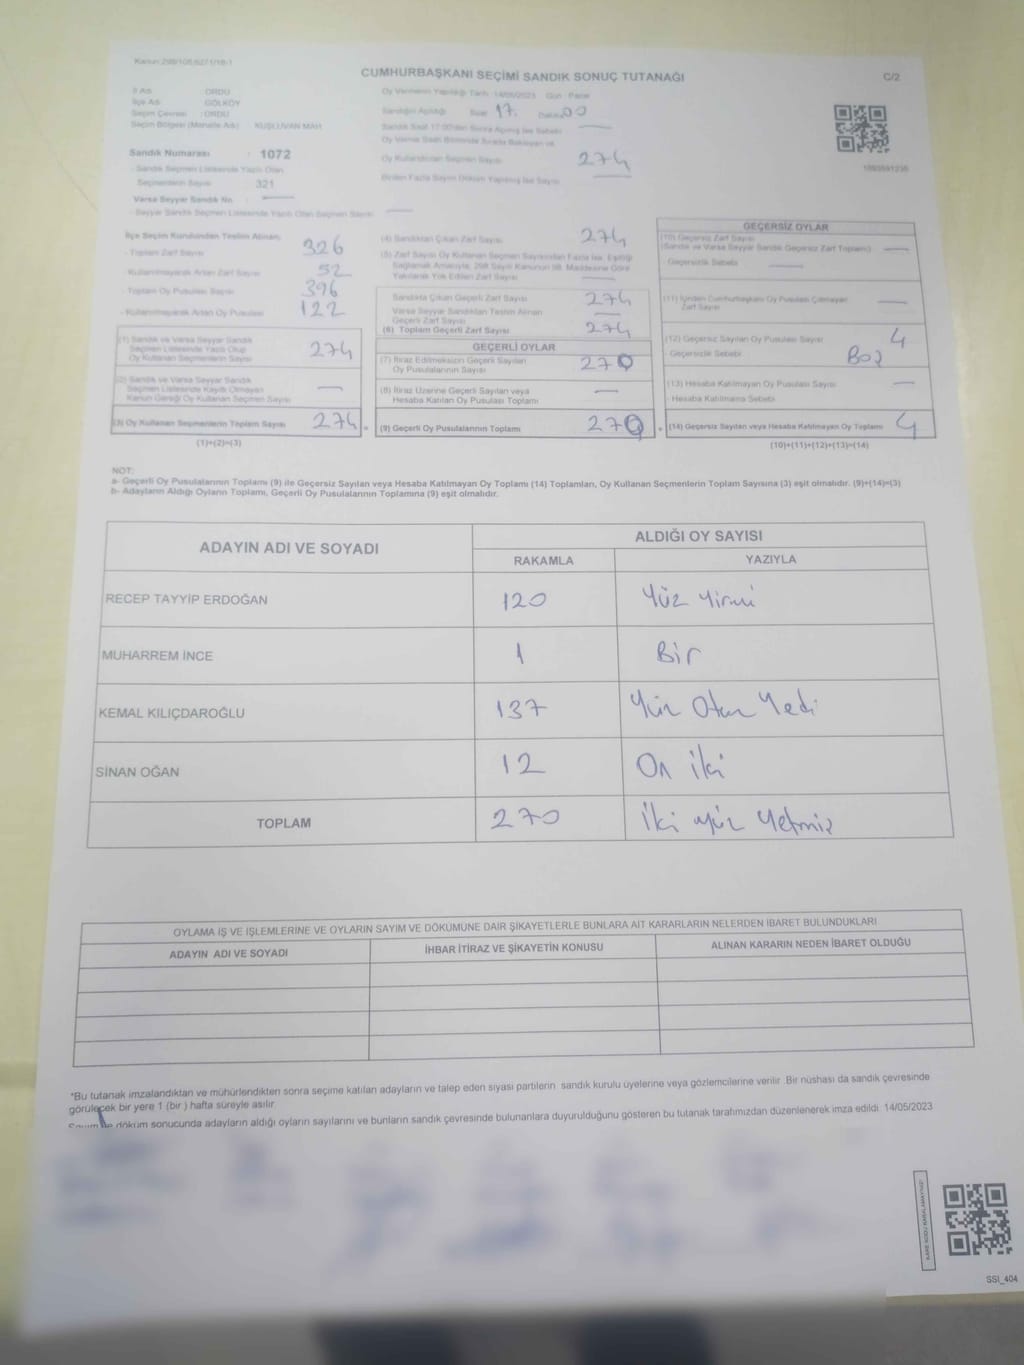 Kanun:298/105,6271/18-1
CUMHURBAŞKANI SEÇİMİ SANDIK SONUÇ TUTANAĞI
C/2
İl Adı : ORDU
İlçe Adı : GÖLKÖY
Seçim Çevresi : ORDU
Seçim Bölgesi (Mahalle Adı) : KUŞLUVAN MAH.
Sandık Numarası : 1072
- Sandık Seçmen Listesinde Yazılı Olan
Seçmenlerin Sayısı 321
Varsa Seyyar Sandık No :
- Seyyar Sandık Seçmen Listesinde Yazılı Olan Seçmen Sayısı
Oy Vermenin Yapıldığı Tarih : 14/05/2023 Gün : Pazar
Sandığın Açıldığı Saat 17. Dakika 00
Sandık Saat 17:00'den Sonra Açılmış İse Sebebi
Oy Verme Saati Bitiminde Sırada Bekleyen ve
Oy Kullandırılan Seçmen Sayısı 274
Birden Fazla Sayım Döküm Yapılmış İse Sayısı
İlçe Seçim Kurulundan Teslim Alınan;
- Toplam Zarf Sayısı 326
- Kullanılmayarak Artan Zarf Sayısı 52
- Toplam Oy Pusulası Sayısı 396
- Kullanılmayarak Artan Oy Pusulası 122
(1) Sandık ve Varsa Seyyar Sandık
Seçmen Listesinde Yazılı Olup
Oy Kullanan Seçmenlerin Sayısı 274
(2) Sandık ve Varsa Seyyar Sandık
Seçmen Listesinde Kayıtlı Olmayan
Kanun Gereği Oy Kullanan Seçmen Sayısı
(3) Oy Kullanan Seçmenlerin Toplam Sayısı 274
(1)+(2)=(3)
(4) Sandıktan Çıkan Zarf Sayısı 274
(5) Zarf Sayısı Oy Kullanan Seçmen Sayısından Fazla İse, Eşitliği
Sağlamak Amacıyla, 298 Sayılı Kanunun 98. Maddesine Göre
Yakılarak Yok Edilen Zarf Sayısı
Sandıkta Çıkan Geçerli Zarf Sayısı 274
Varsa Seyyar Sandıktan Teslim Alınan
Geçerli Zarf Sayısı
(6) Toplam Geçerli Zarf Sayısı 274
GEÇERLİ OYLAR
(7) İtiraz Edilmeksizin Geçerli Sayılan
Oy Pusulalarının Sayısı 270
(8) İtiraz Üzerine Geçerli Sayılan veya
Hesaba Katılan Oy Pusulası Toplamı
(9) Geçerli Oy Pusulalarının Toplamı 270
GEÇERSİZ OYLAR
(10) Geçersiz Zarf Sayısı
(Sandık ve Varsa Seyyar Sandık Geçersiz Zarf Toplamı)
- Geçersizlik Sebebi
(11) İçinden Cumhurbaşkanı Oy Pusulası Çıkmayan
Zarf Sayısı
(12) Geçersiz Sayılan Oy Pusulası Sayısı 4
- Geçersizlik Sebebi Boş
(13) Hesaba Katılmayan Oy Pusulası Sayısı
- Hesaba Katılmama Sebebi
(14) Geçersiz Sayılan veya Hesaba Katılmayan Oy Toplamı 4
(10)+(11)+(12)+(13)=(14)
NOT:
a- Geçerli Oy Pusulalarının Toplamı (9) ile Geçersiz Sayılan veya Hesaba Katılmayan Oy Toplamı (14) Toplamları, Oy Kullanan Seçmenlerin Toplam Sayısına (3) eşit olmalıdır. (9)+(14)=(3)
b- Adayların Aldığı Oyların Toplamı, Geçerli Oy Pusulalarının Toplamına (9) eşit olmalıdır.
ADAYIN ADI VE SOYADI ALDIĞI OY SAYISI
RAKAMLA YAZIYLA
RECEP TAYYİP ERDOĞAN 120 Yüz Yirmi
MUHARREM İNCE 1 Bir
KEMAL KILIÇDAROĞLU 137 Yüz Otuz Yedi
SİNAN OĞAN 12 On iki
TOPLAM 270 İki yüz Yetmiş
OYLAMA İŞ VE İŞLEMLERİNE VE OYLARIN SAYIM VE DÖKÜMÜNE DAİR ŞİKAYETLERLE BUNLARA AİT KARARLARIN NELERDEN İBARET BULUNDUKLARI
ADAYIN ADI VE SOYADI İHBAR İTİRAZ VE ŞİKAYETİN KONUSU ALINAN KARARIN NEDEN İBARET OLDUĞU
*Bu tutanak imzalandıktan ve mühürlendikten sonra seçime katılan adayların ve talep eden siyasi partilerin sandık kurulu üyelerine veya gözlemcilerine verilir. Bir nüshası da sandık çevresinde
görülecek bir yere 1 (bir) hafta süreyle asılır.
Sayım ve döküm sonucunda adayların aldığı oyların sayılarını ve bunların sandık çevresinde bulunanlara duyurulduğunu gösteren bu tutanak tarafımızdan düzenlenerek imza edildi. 14/05/2023
SSI_404